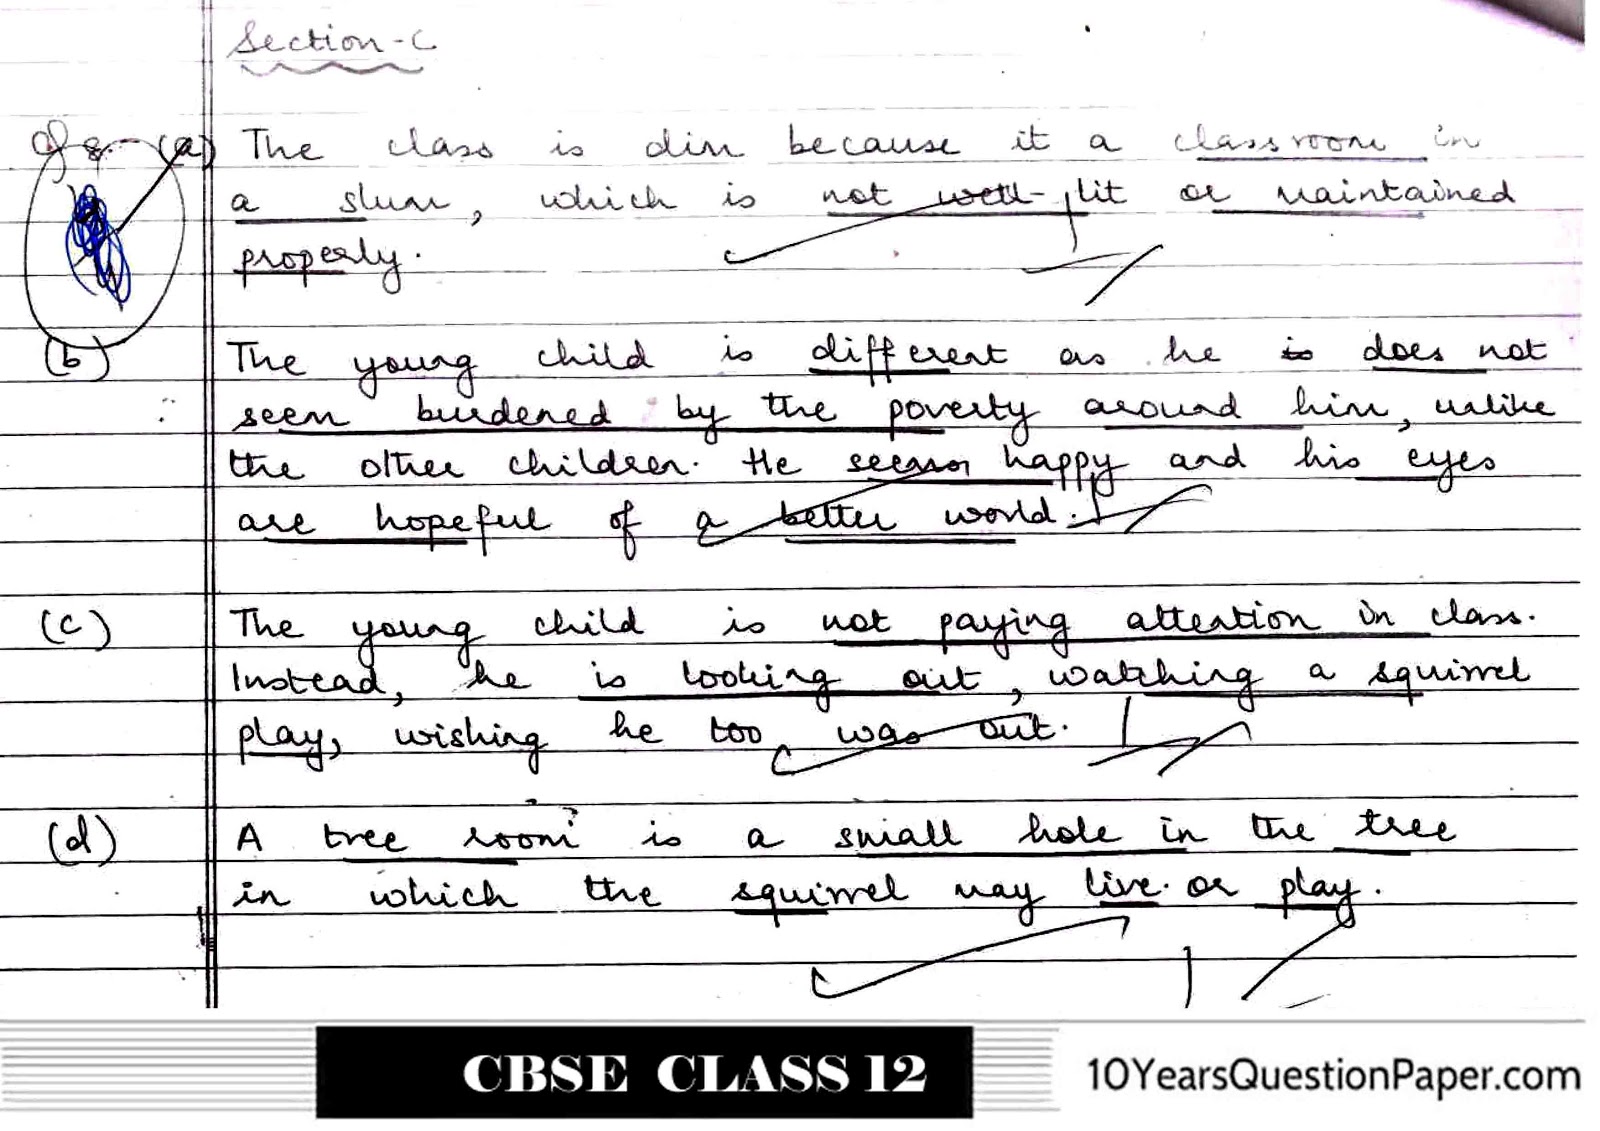 Section-C
Q8. (a) The class is dim because it a classroom in
a slum, which is not well-lit or maintained
properly.
(b) The young child is different as he is does not
seem burdened by the poverty around him, unlike
the other children. He seems happy and his eyes
are hopeful of a better world.
(c) The young child is not paying attention in class.
Instead, he is looking out, watching a squirrel
play, wishing he too was out.
(d) A tree room is a small hole in the tree
in which the squirrel may live or play.
CBSE CLASS 12
10YearsQuestionPaper.com